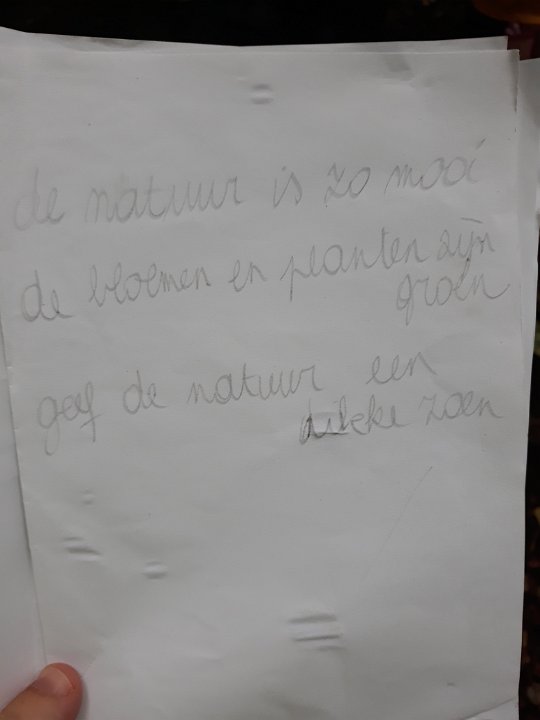 de natuur is zo mooi
de bloemen en planten zijn
groen
geef de natuur een
dikke zoen